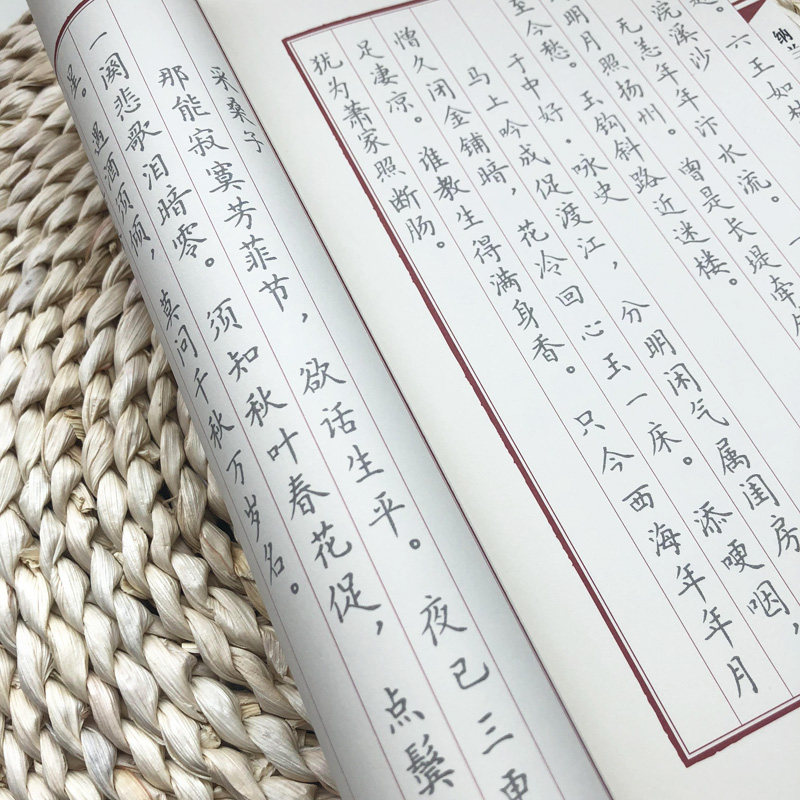 纳
六王如
浣溪沙
无恙年年汴水流。一
明月照扬州。曾是长堤牵
至今愁。玉钩斜路近迷楼。
于中好·咏史
马上吟成促渡江，分明闲气属闺房
憎久闭金铺暗，花冷回心玉一床。添哽咽，
足凄凉。谁教生得满身香。只今西海年年月
犹为萧家照断肠。
采桑子
那能寂寞芳菲节，欲话生平。夜已三更
一阕悲歌泪暗零。须知秋叶春花促，点鬓
星。遇酒须倾，莫问千秋万岁名。